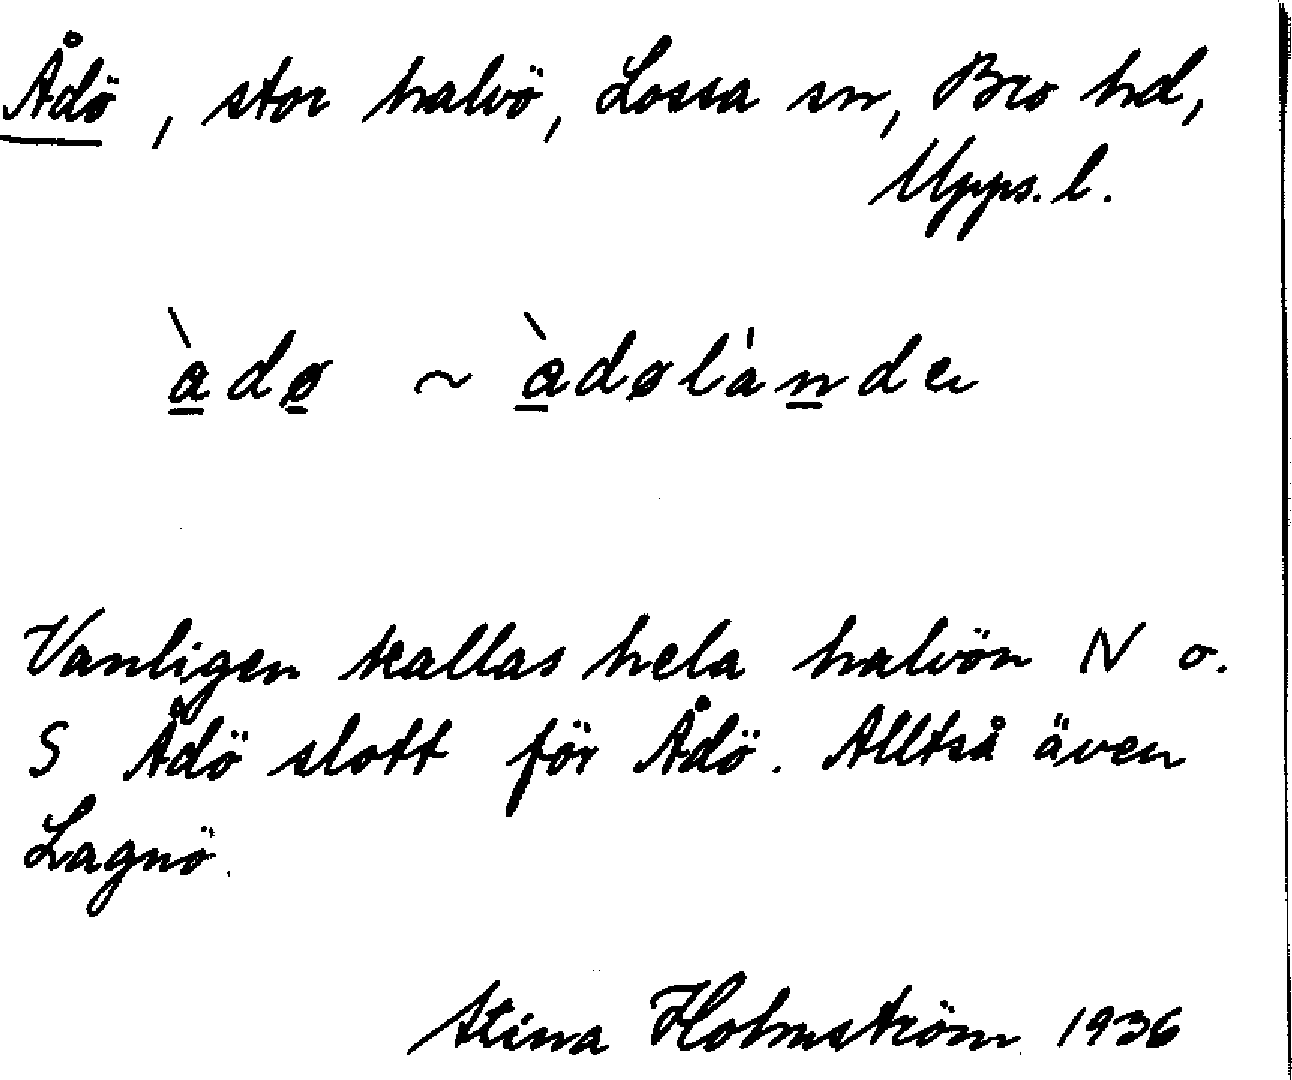 Ådö, stor halvö, Lossa sn, Bro hd,
Upps. l.
àdø ~ àdølánder
Vanligen kallas hela halvön N o.
S Ådö slott för Ådö. Alltså även
Lagnö.
Stina Holmström 1936